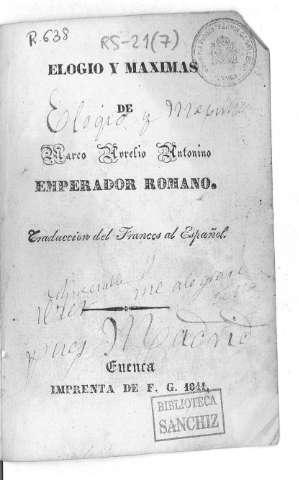 R-638
RS-21(7)
ELOGIO Y MAXIMAS
DE
Elogio y
Marco Avrelio Antonino
EMPERADOR ROMANO.
Traduccion del Frances al Español.
me alegrare
pues Madrid
Cuenca
IMPRENTA DE F. G. 1841.
BIBLIOTECA
SANCHIZ